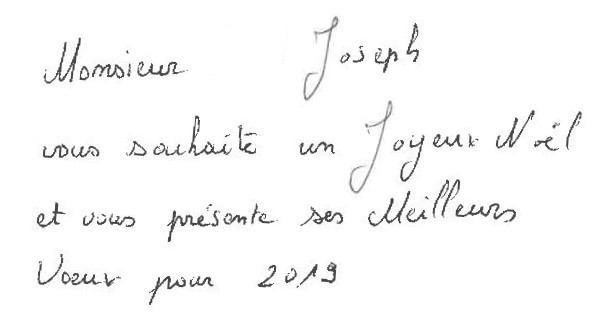 Monsieur Joseph
vous souhaite un Joyeux Noël
et vous présente ses Meilleurs
Vœux pour 2019